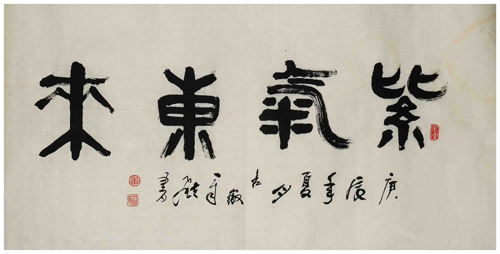 紫氣東來
庚辰年夏月古徽書